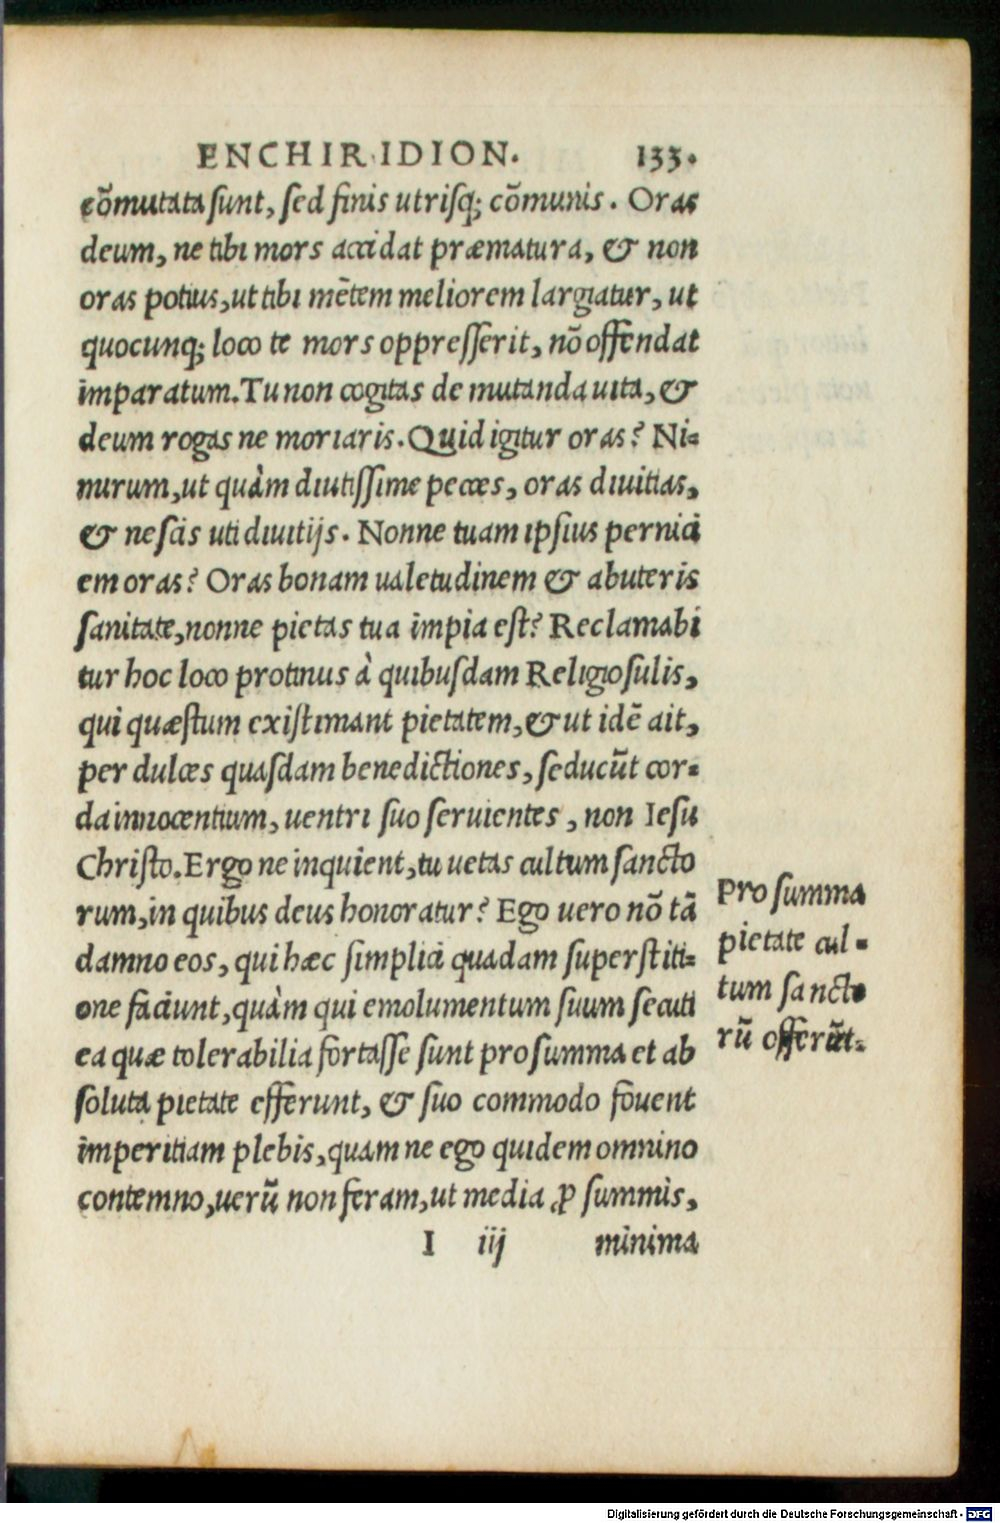 ENCHIRIDION. 133.
cõmutata sunt, sed finis utrisq; cõmunis. Oras
deum, ne tibi mors accidat præmatura, & non
oras potius, ut tibi mẽtem meliorem largiatur, ut
quocunq; loco te mors oppresserit, nõ offendat
imparatum. Tu non cogitas de mutanda uita, &
deum rogas ne moriaris. Quid igitur oras? Ni=
mirum, ut quàm diutissime pecces, oras diuitias,
& nescis uti diuitijs. Nonne tuam ipsius pernici
em oras? Oras bonam ualetudinem & abuteris
sanitate, nonne pietas tua impia est? Reclamabi
tur hoc loco protinus à quibusdam Religiosulis,
qui quæstum existimant pietatem, & ut idẽ ait,
per dulces quasdam benedictiones, seducũt cor=
da innocentium, uentri suo seruientes, non Iesu
Christo. Ergo ne inquient, tu uetas cultum sancto
rum, in quibus deus honoratur? Ego uero nõ tã
damno eos, qui hæc simplici quadam superstiti=
one faciunt, quàm qui emolumentum suum secuti
ea quæ tolerabilia fortasse sunt pro summa et ab
soluta pietate efferunt, & suo commodo fouent
imperitiam plebis, quam ne ego quidem omnino
contemno, uerũ non feram, ut media ꝓ summis,
I iij minima
Pro summa
pietate cul=
tum sancto
rũ offerũt.
Digitalisierung gefördert durch die Deutsche Forschungsgemeinschaft - DFG